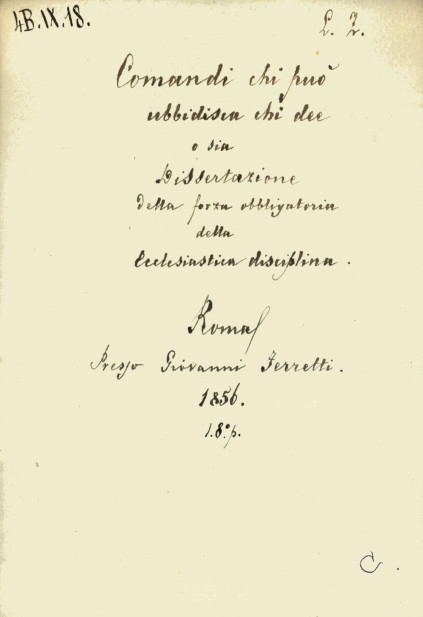 4B.IX.18.
L. Z.
Comandi chi può
ubbidisca chi dee
o sia
Dissertazione
della forza obbligatoria
della
Ecclesiastica disciplina.
Roma
Presso Giovanni Ferretti.
1856.
1.8.°p.
C.